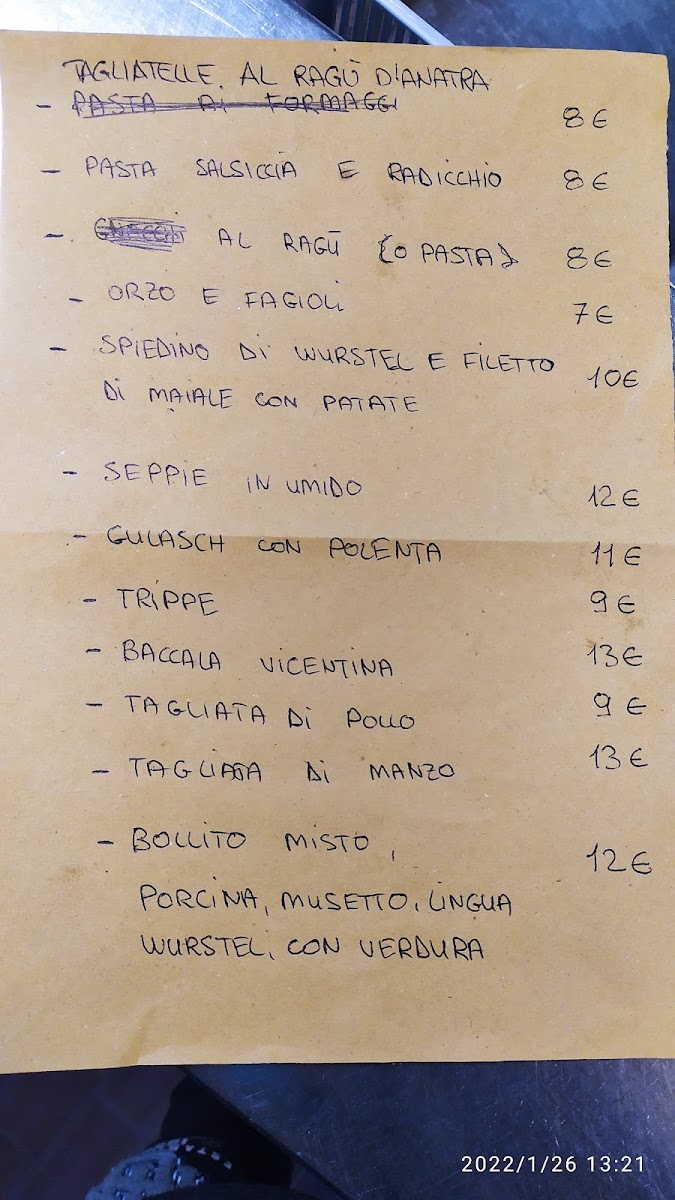 TAGLIATELLE AL RAGÙ D'ANATRA
- PASTA AI FORMAGGI 8€
- PASTA SALSICCIA E RADICCHIO 8€
- GNOCCHI AL RAGÙ (O PASTA) 8€
- ORZO E FAGIOLI 7€
- SPIEDINO DI WURSTEL E FILETTO 10€
DI MAIALE CON PATATE
- SEPPIE IN UMIDO 12€
- GULASCH CON POLENTA 11€
- TRIPPE 9€
- BACCALA VICENTINA 13€
- TAGLIATA DI POLLO 9€
- TAGLIATA DI MANZO 13€
- BOLLITO MISTO, 12€
PORCINA, MUSETTO, LINGUA
WURSTEL, CON VERDURA
2022/1/26 13:21